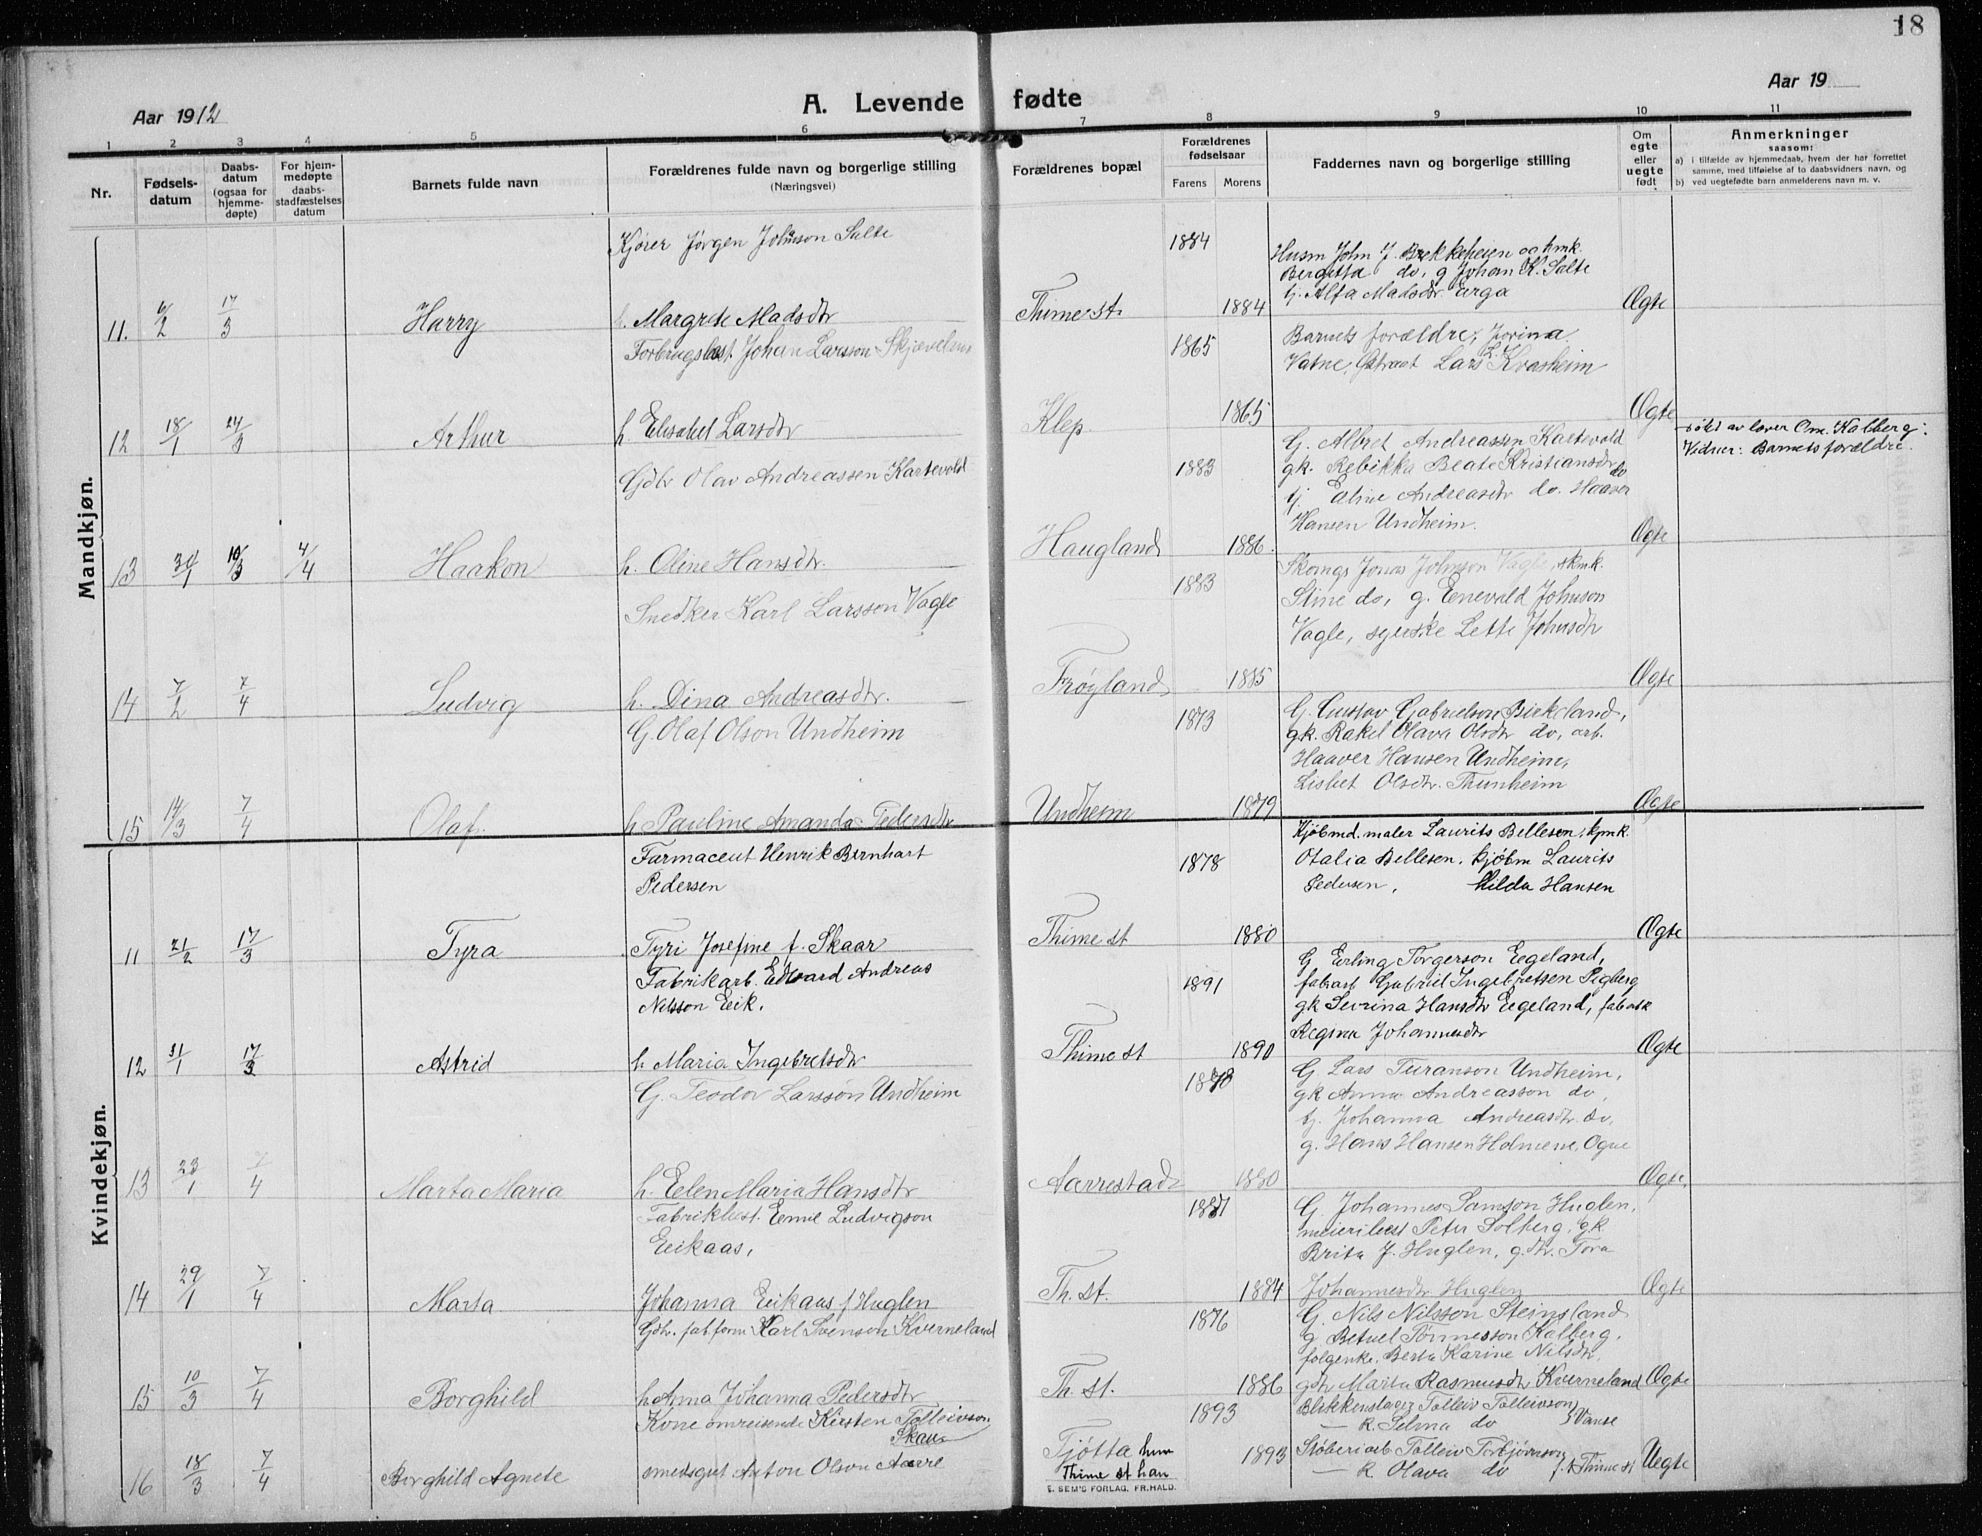 18
Aar 1912
A. Levende fødte
Aar 19
1 2 3 4 5 6 7 8 9 10 11
Nr.
Fødsels-
datum
Daabs-
datum
(ogsaa for
hjemme-
døpte)
For hjem-
medøpte
daabs-
stadfæstelses
datum
Barnets fulde navn
Forældrenes fulde navn og borgerlige stilling
(Næringsvei)
Forældrenes bopæl
Forældrenes
fødselsaar
Farens Morens
Faddernes navn og borgerlige stilling
Om
egte
eller
uegte
født
Anmerkninger
saasom:
a) i tilfælde av hjemmedaab, hvem der har forrettet
samme, med tilføielse af to daabsvidners navn, og
b) ved uegtefødte barn anmelderens navn m. v.
Mandkjøn.
Kjører Jørgen Johnson Salte
1884
Husm John J. Brekkeheien og kmk.
Bergitta do, g Johan K. Salte
tj. Alfa Madsdtr Erga
11. 6/2 17/3 Harry h. Margrete Madsdtr Thime st. 1884 Ægte
Forbrugsbest. Johan Larsson Skjæveland
1865
Barnets forældre, Jorina
Vatne, Lars L. Kvasheim
12 18/1 24/3 Arthur h. Elisabet Larsdtr Klep 1865 Ægte
døbt av lærer Om. Kalberg.
Vidner: Barnets forældre.
Gdbr Olav Andreassen Kartevold
1883
G. Albret Andreassen Kartevold
gk. Rebikka Beate Kristiansdtr do
tj. Eline Andreasdtr do. Haaver
Hansen Undheim.
13 30/1 10/3 4/4 Haakon h. Oline Hansdtr. Haugland 1886. Ægte
Snedker Karl Larsson Vagle
1883
Skomg Jonas Johnson Vagle, skmk.
Stine do, g. Enevald Johnson
Vagle, syerske Lette Johnsdtr
14 7/2 7/4 Ludvig h. Dina Andreasdtr. Frøyland 1885 Ægte
G. Olaf Olson Undheim
1873
G. Gustav Gabrielson Birkeland,
gk. Rakel Olava Olsdtr do, arb.
Haaver Hansen Undheim,
Lisbet Olsdtr. Thunheim
15 14/3 7/4 Olaf. h Pauline Amanda Pedersdtr Undheim 1879 Ægte
Kvindekjøn.
Farmaceut Henrik Bernhart
Pedersen
1878
Kjøbmd. maler Laurits Bellesen, kpmk.
Otalia Bellesen, kjøbm Laurits
Pedersen, Hilda Hansen
11 21/2 17/3 Tyra Tyri Josefine f. Skaar Thime st 1880 Ægte
Fabrikarb. Edvard Andreas
Nilsson Eeik.
1891
G Erling Torgerson Eegeland,
fabarb Gabriel Ingebretsen Pigberg
gk Sevrina Hansdtr Eegeland, fabarb
Regina Johannesdtr
12 31/1 17/3 Astrid h Maria Ingebretsdtr Thime st 1890 Ægte
G. Teodor Larsson Undheim
1878
G. Lars Turanson Undheim,
gk Anna Andreasson do,
tj. Johanna Andreasdtr do,
g. Hans Hansen Holmene, Ogne
13 23/1 7/4 Marta Maria h. Eelen Maria Hansdtr Aarrestad 1880 Ægte,
Fabrikbest. Eemil Ludvigson
Eeikaas,
1881
G. Johannes Samson Huglen,
meieribest Peter Solberg, gk
Brita J. Huglen, g.dtr. Tora
14 29/1 7/4 Marta Johanna Eeikaas f Huglen Th. st. 1884 Johannesdtr Huglen Ægte
Gdbr. fab.form Karl Svenson Kverneland
1876
G. Nils Nilsson Steinsland
g Betuel Tønnesson Kalberg.
folgenke. Berta Karine Nilsdtr.
15 10/3 7/4 Borghild h Anna Johanna Pedersdtr Th. st. 1886 gdtr Marta Rasmusdtr Kverneland Ægte
Kone omreisende Kirsten Tolleivson
Skau
1893
Blikkenslager Tolleiv Tolleivson
— k. Selma do } Vanse
16 18/3 7/4 Borghild Agnete smedsgut Anton Olson Aarre Tjøtta hun
Thime st han
1893
Støberiarb Tolleiv Torbjørnson
— k Olava do f. k Thime st
Uegte
E. SEM'S FORLAG. FR.HALD.